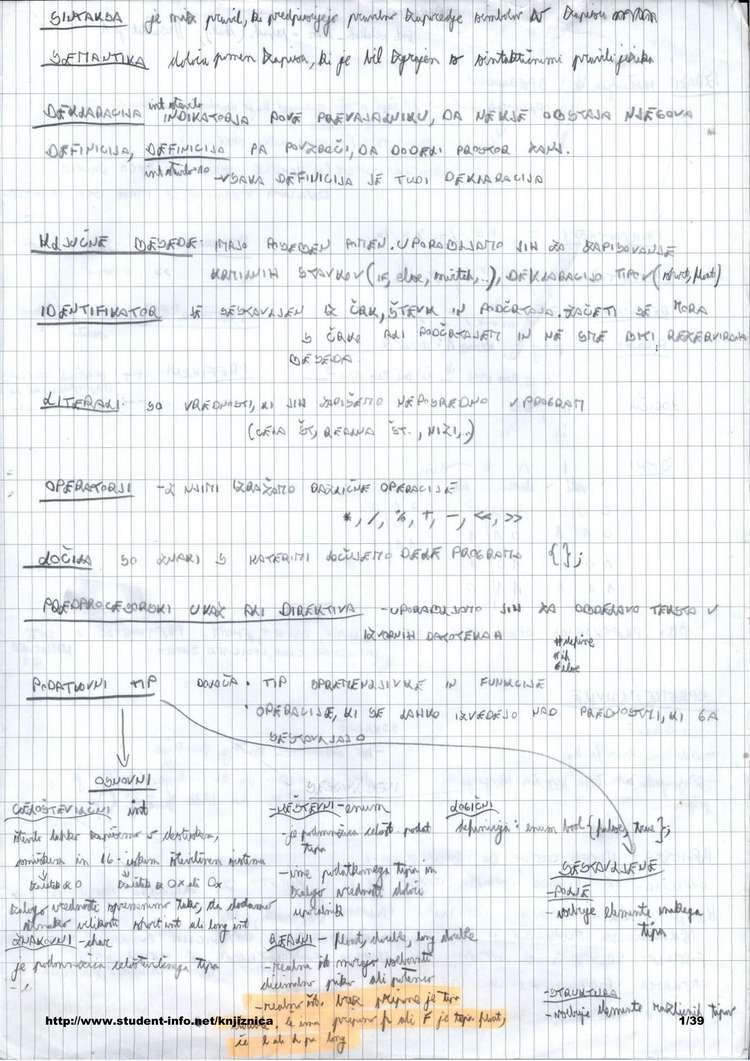 SINTAKSA je množica pravil, ki predpisujejo pravilno zaporedje simbolov v zapisu
SEMANTIKA določa pomen zapisa, ki je bil zgrajen s sintaktičnimi pravili jezika
int število
DEKLARACIJA INDIKATORJA POVE PREVAJALNIKU, DA NEKJE OBSTAJA NJEGOVA
DEFINICIJA, DEFINICIJA PA POVZROČI, DA DODELI PROSTOR
int število=10 → VSAKA DEFINICIJA JE TUDI DEKLARACIJA
KLJUČNE BESEDE: IMAJO POSEBEN POMEN. UPORABLJAMO JIH ZA ZAPISOVANJE
KRMILNIH STAVKOV (if, else, switch,..), DEKLARACIJO TIPOV (short, float)
IDENTIFIKATOR JE SESTAVLJEN IZ ČRK, ŠTEVK IN PODČRTAJA. ZAČETI SE MORA
S ČRKO ALI PODČRTAJEM IN NE SME BITI REZERVIRANA
BESEDA
LITERALI: SO VREDNOSTI, KI JIH ZAPIŠEMO NEPOSREDNO V PROGRAM
(CELA ŠT, REALNA ŠT., NIZI,..)
OPERATORJI - Z NJIMI IZRAŽAMO RAZLIČNE OPERACIJE
*, /, %, +, -, <<, >>
LOČILA SO ZNAKI S KATERIMI LOČUJEMO DELE PROGRAMA {};
PREDPROCESORSKI UKAZ ALI DIREKTIVA - UPORABLJAMO JIH ZA OBDELAVO TEKSTA V
IZVORNIH DATOTEKAH
#define
#if
#else
PODATKOVNI TIP DOLOČA • TIP SPREMENLJIVKE IN FUNKCIJE
• OPERACIJE, KI SE LAHKO IZVEDEJO NAD VREDNOSTMI, KI GA
SESTAVLJAJO
OSNOVNI
CELOŠTEVILČNI int
število lahko zapišemo v desetiškem,
osmiškem in 16-iškem številčnem sistemu
začetek z 0 začetek z 0x ali 0X
zalogo vrednosti spremenimo tako, da dodamo
oznako velikosti short int ali long int
ZNAKOVNI - char
je podmnožica celoštevilčnega tipa
- NAŠTEVNI - enum
- je podmnožica celošt. podat.
tipa
- ime podatkovnega tipa in
zalogo vrednosti določi
uporabnik
REALNI - float, double, long double
- realna št. morajo vsebovati
decimalno piko ali potenco
- realno št. brez pripone je tipa
double, če ima pripono f ali F je tipa float,
če l ali L pa long
LOGIČNI
definicija: enum bool {false, true};
SESTAVLJENE
- POLJE
- vsebuje elemente enakega
tipa
- STRUKTURA
- vsebuje elemente različnih tipov
http://www.student-info.net/knjiznica
1/39